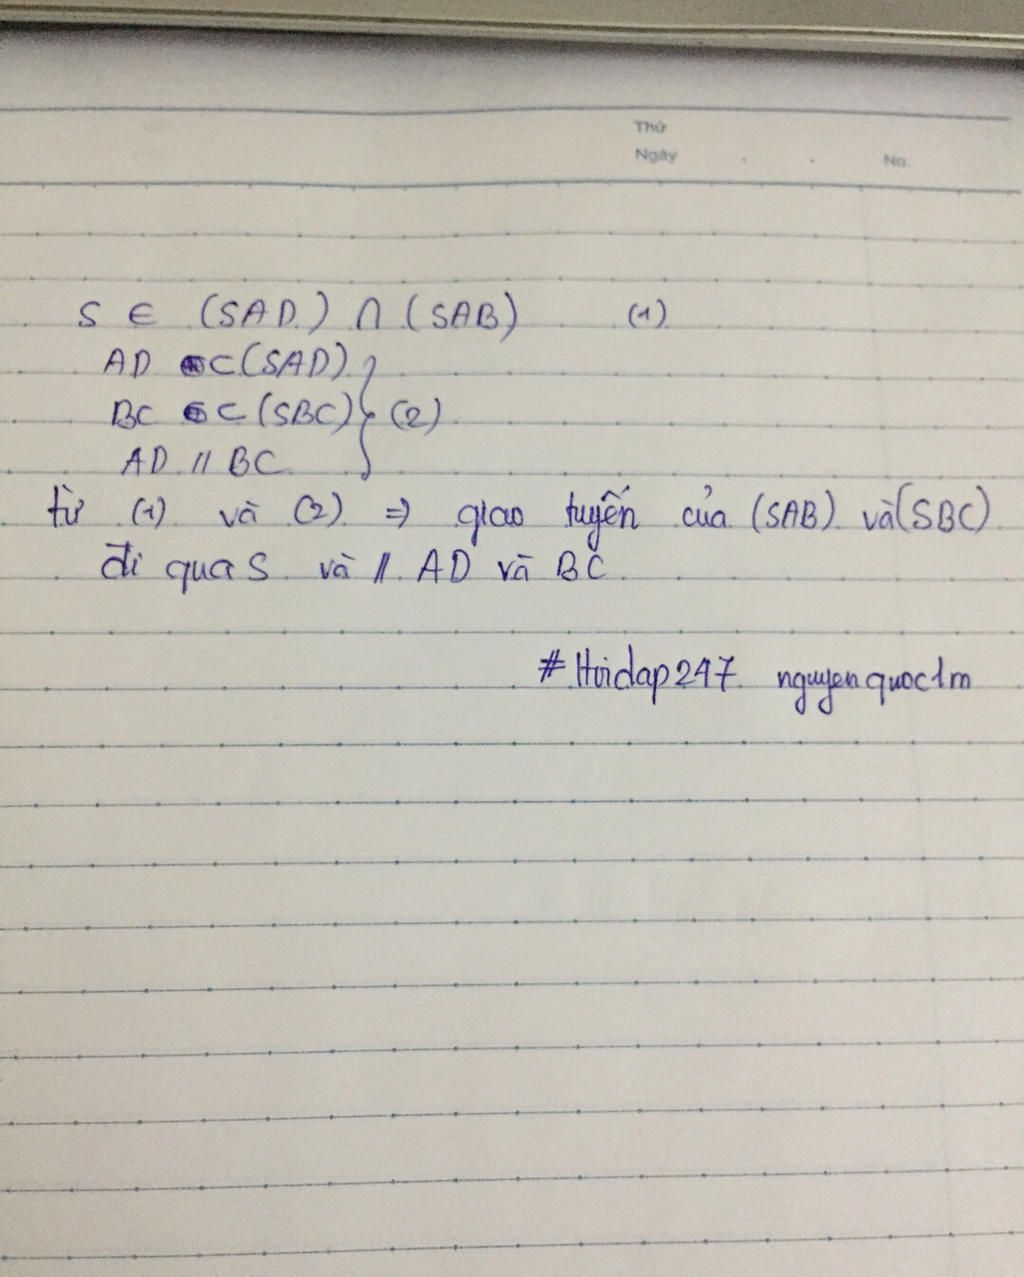 Thứ
Ngày No.
S ∈ (SAD) ∩ (SAB) (1)
AD ⊂ (SAD)
BC ⊂ (SBC) } (2)
AD // BC
từ (1) và (2) ⇒ giao tuyến của (SAB) và (SBC)
đi qua S và // AD và BC
#Hoidap247 nguyenquoc1m